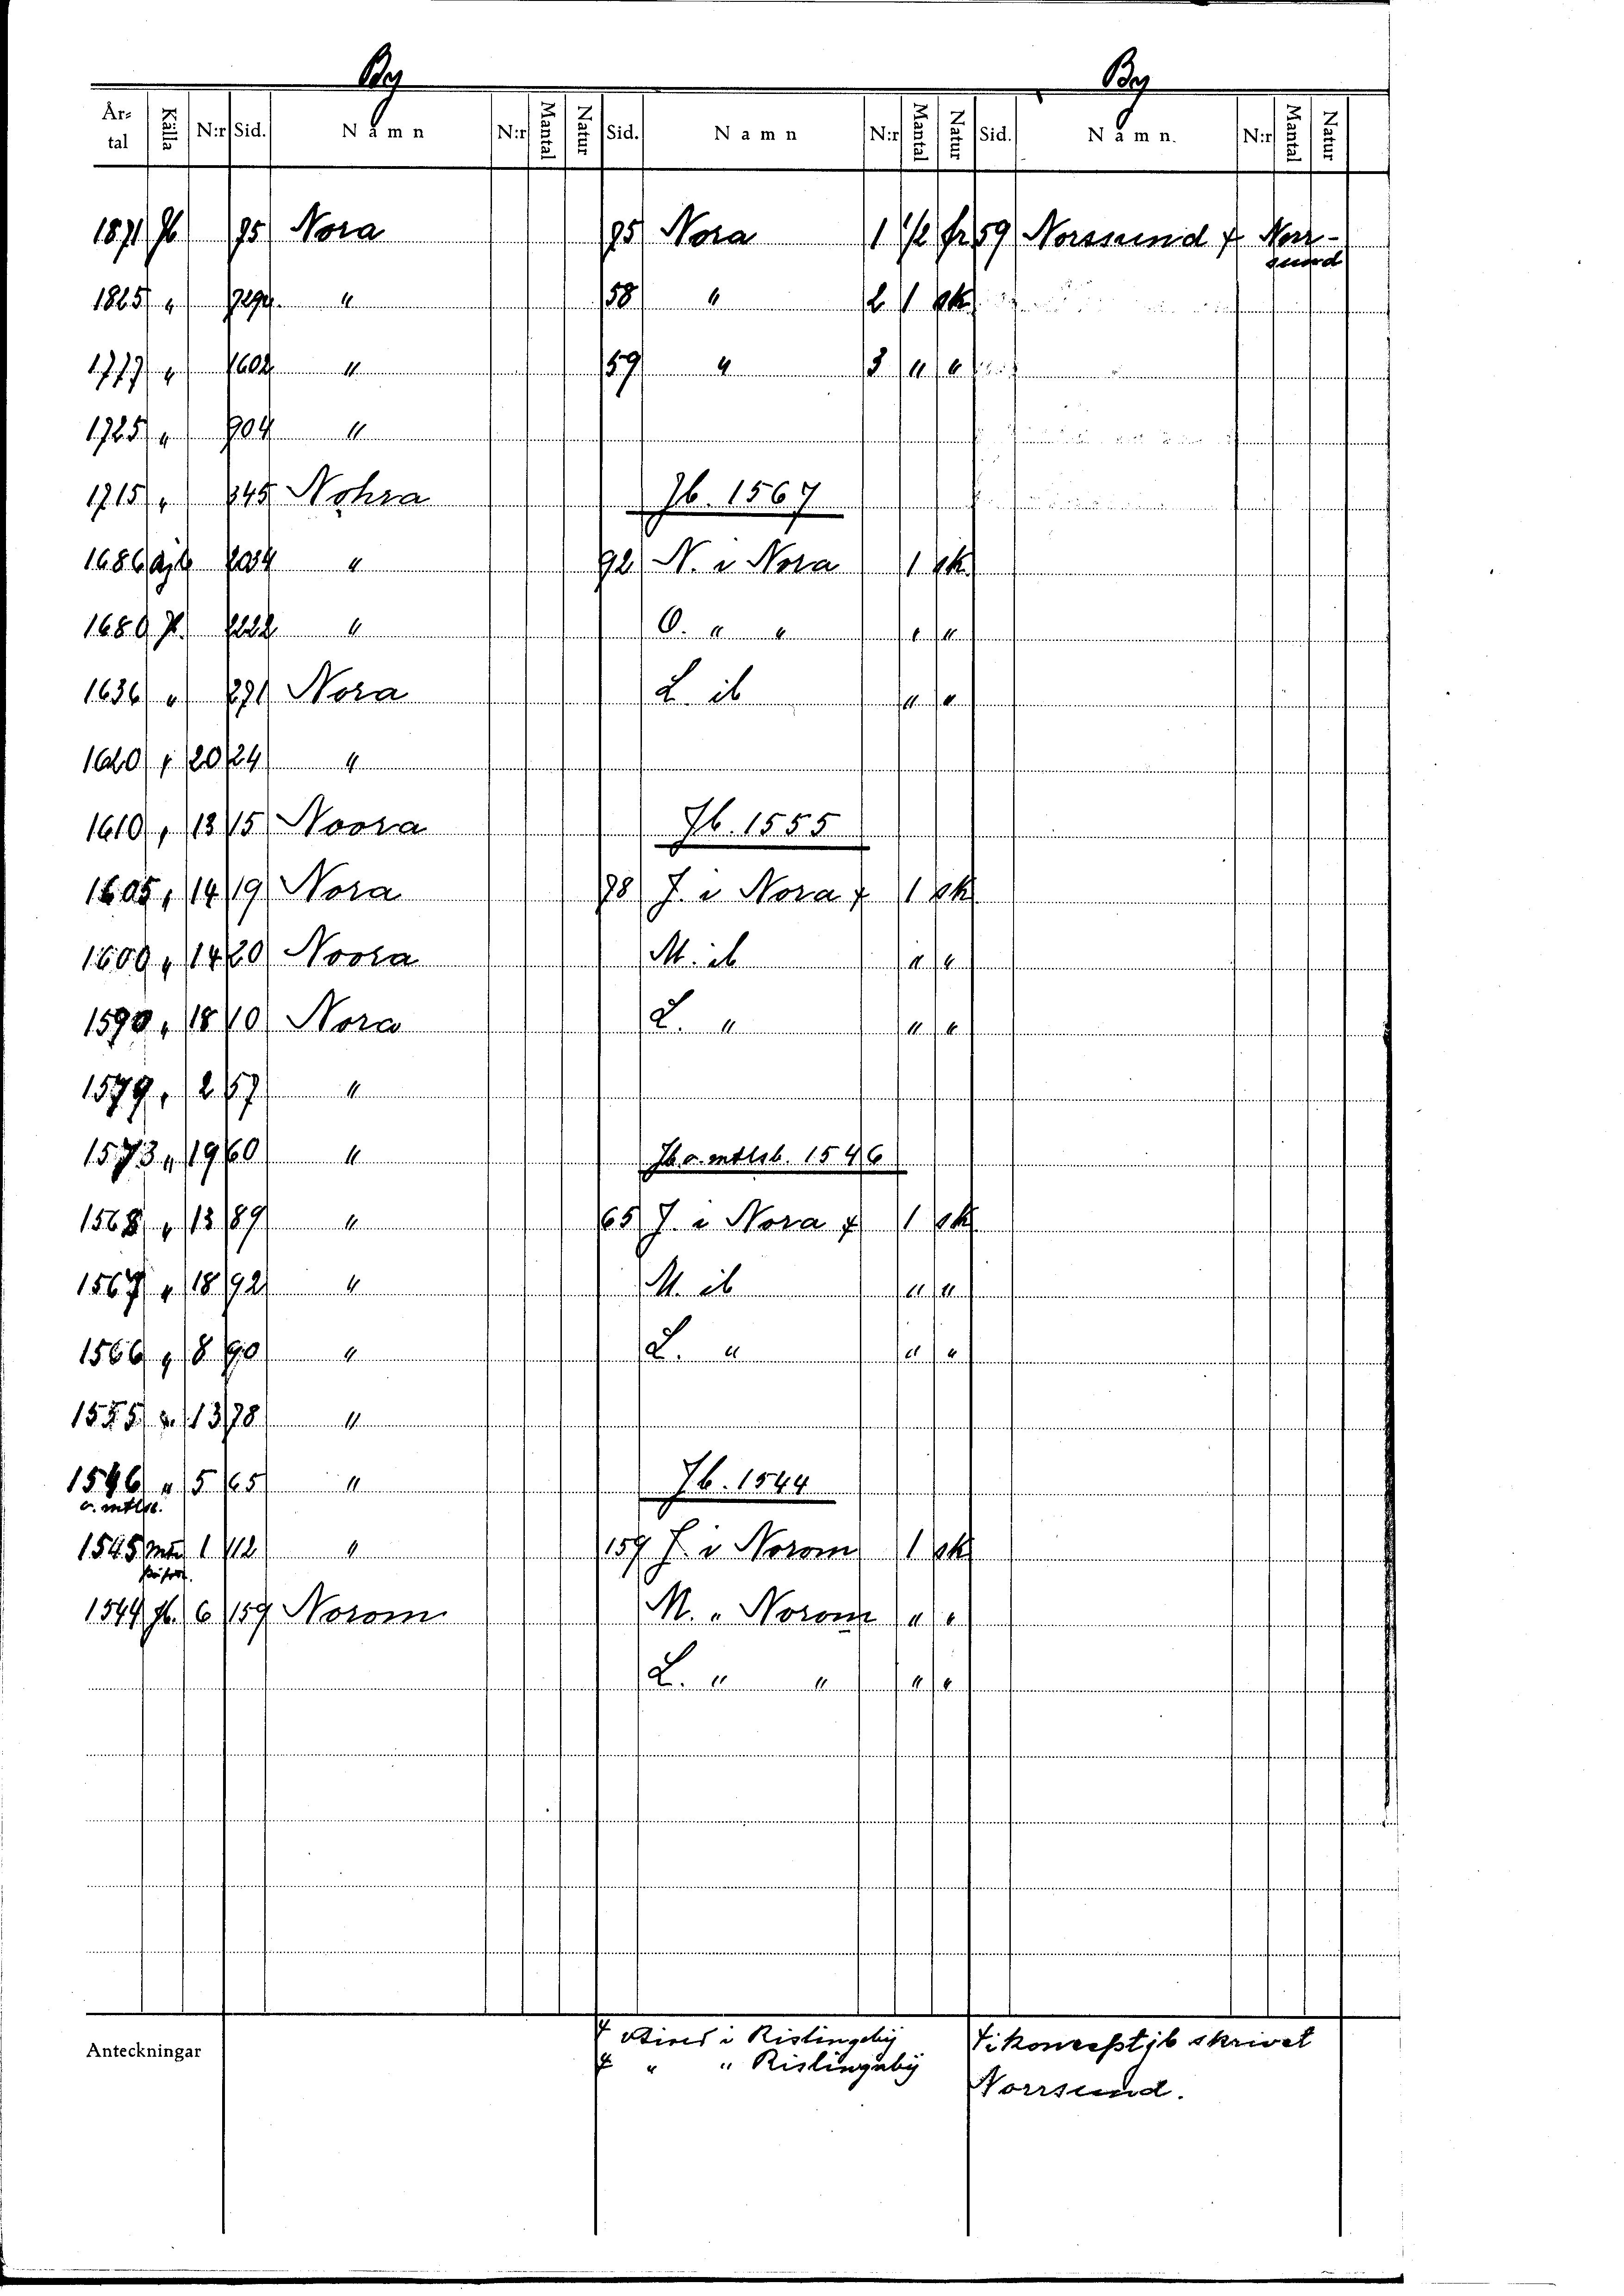 By By
År-tal Källa N:r Sid. Namn N:r Mantal Natur Sid. Namn N:r Mantal Natur Sid. Namn. N:r Mantal Natur
1871 Jb 75 Nora 75 Nora 1 1/2 fr 59 Norssund + Norr-
sund
1825 " " 58 " 2 1 sk
1777 " 1602 " 59 " 3 " "
1725 " 904 "
1715 " 345 Nohra Jb. 1567
1686 ajb 2034 " 92 N. i Nora 1 sk
1680 Jb. 2222 " O. " " " "
1636 " 271 Nora L. ib " "
1620 " 20 24 "
1610 " 13 15 Noora Jb. 1555
1605 " 14 19 Nora 78 J. i Nora + 1 sk
1600 " 14 20 Noora M. ib " "
1590 " 18 10 Nora L. " " "
1579 " 2 57 "
1573 " 19 60 " Jb o. mtlsb. 1546
1568 " 13 89 " 65 J. i Nora + 1 sk
1567 " 18 92 " M. ib " "
1566 " 8 90 " L. " " "
1555 " 13 78 "
1546 " 5 65 " Jb. 1544
o. mtlsb.
1545 1 112 " 159 J. i Norom 1 sk
1544 Jb. 6 159 Norom M. " Norom " "
L. " " " "
Anteckningar
+ i Rislingebij + i konceptjb skrivet
+ " " Rislingabij
Norrsund.